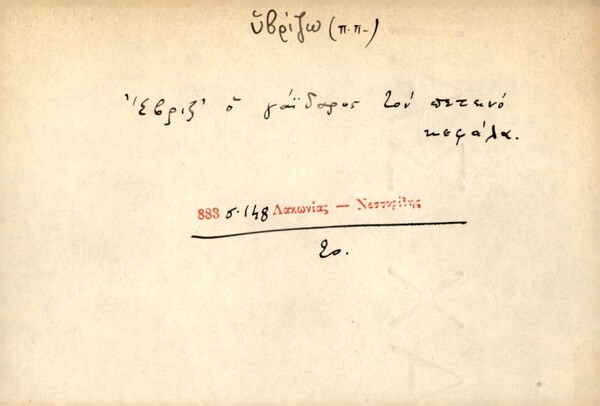 ὑβρίζω (π.π.)
Ἔβριζ' ὁ γάϊδαρος τὸν πετεινό
κεφάλα.
883 σ. 148 Λακωνίας — Νεστορίδης